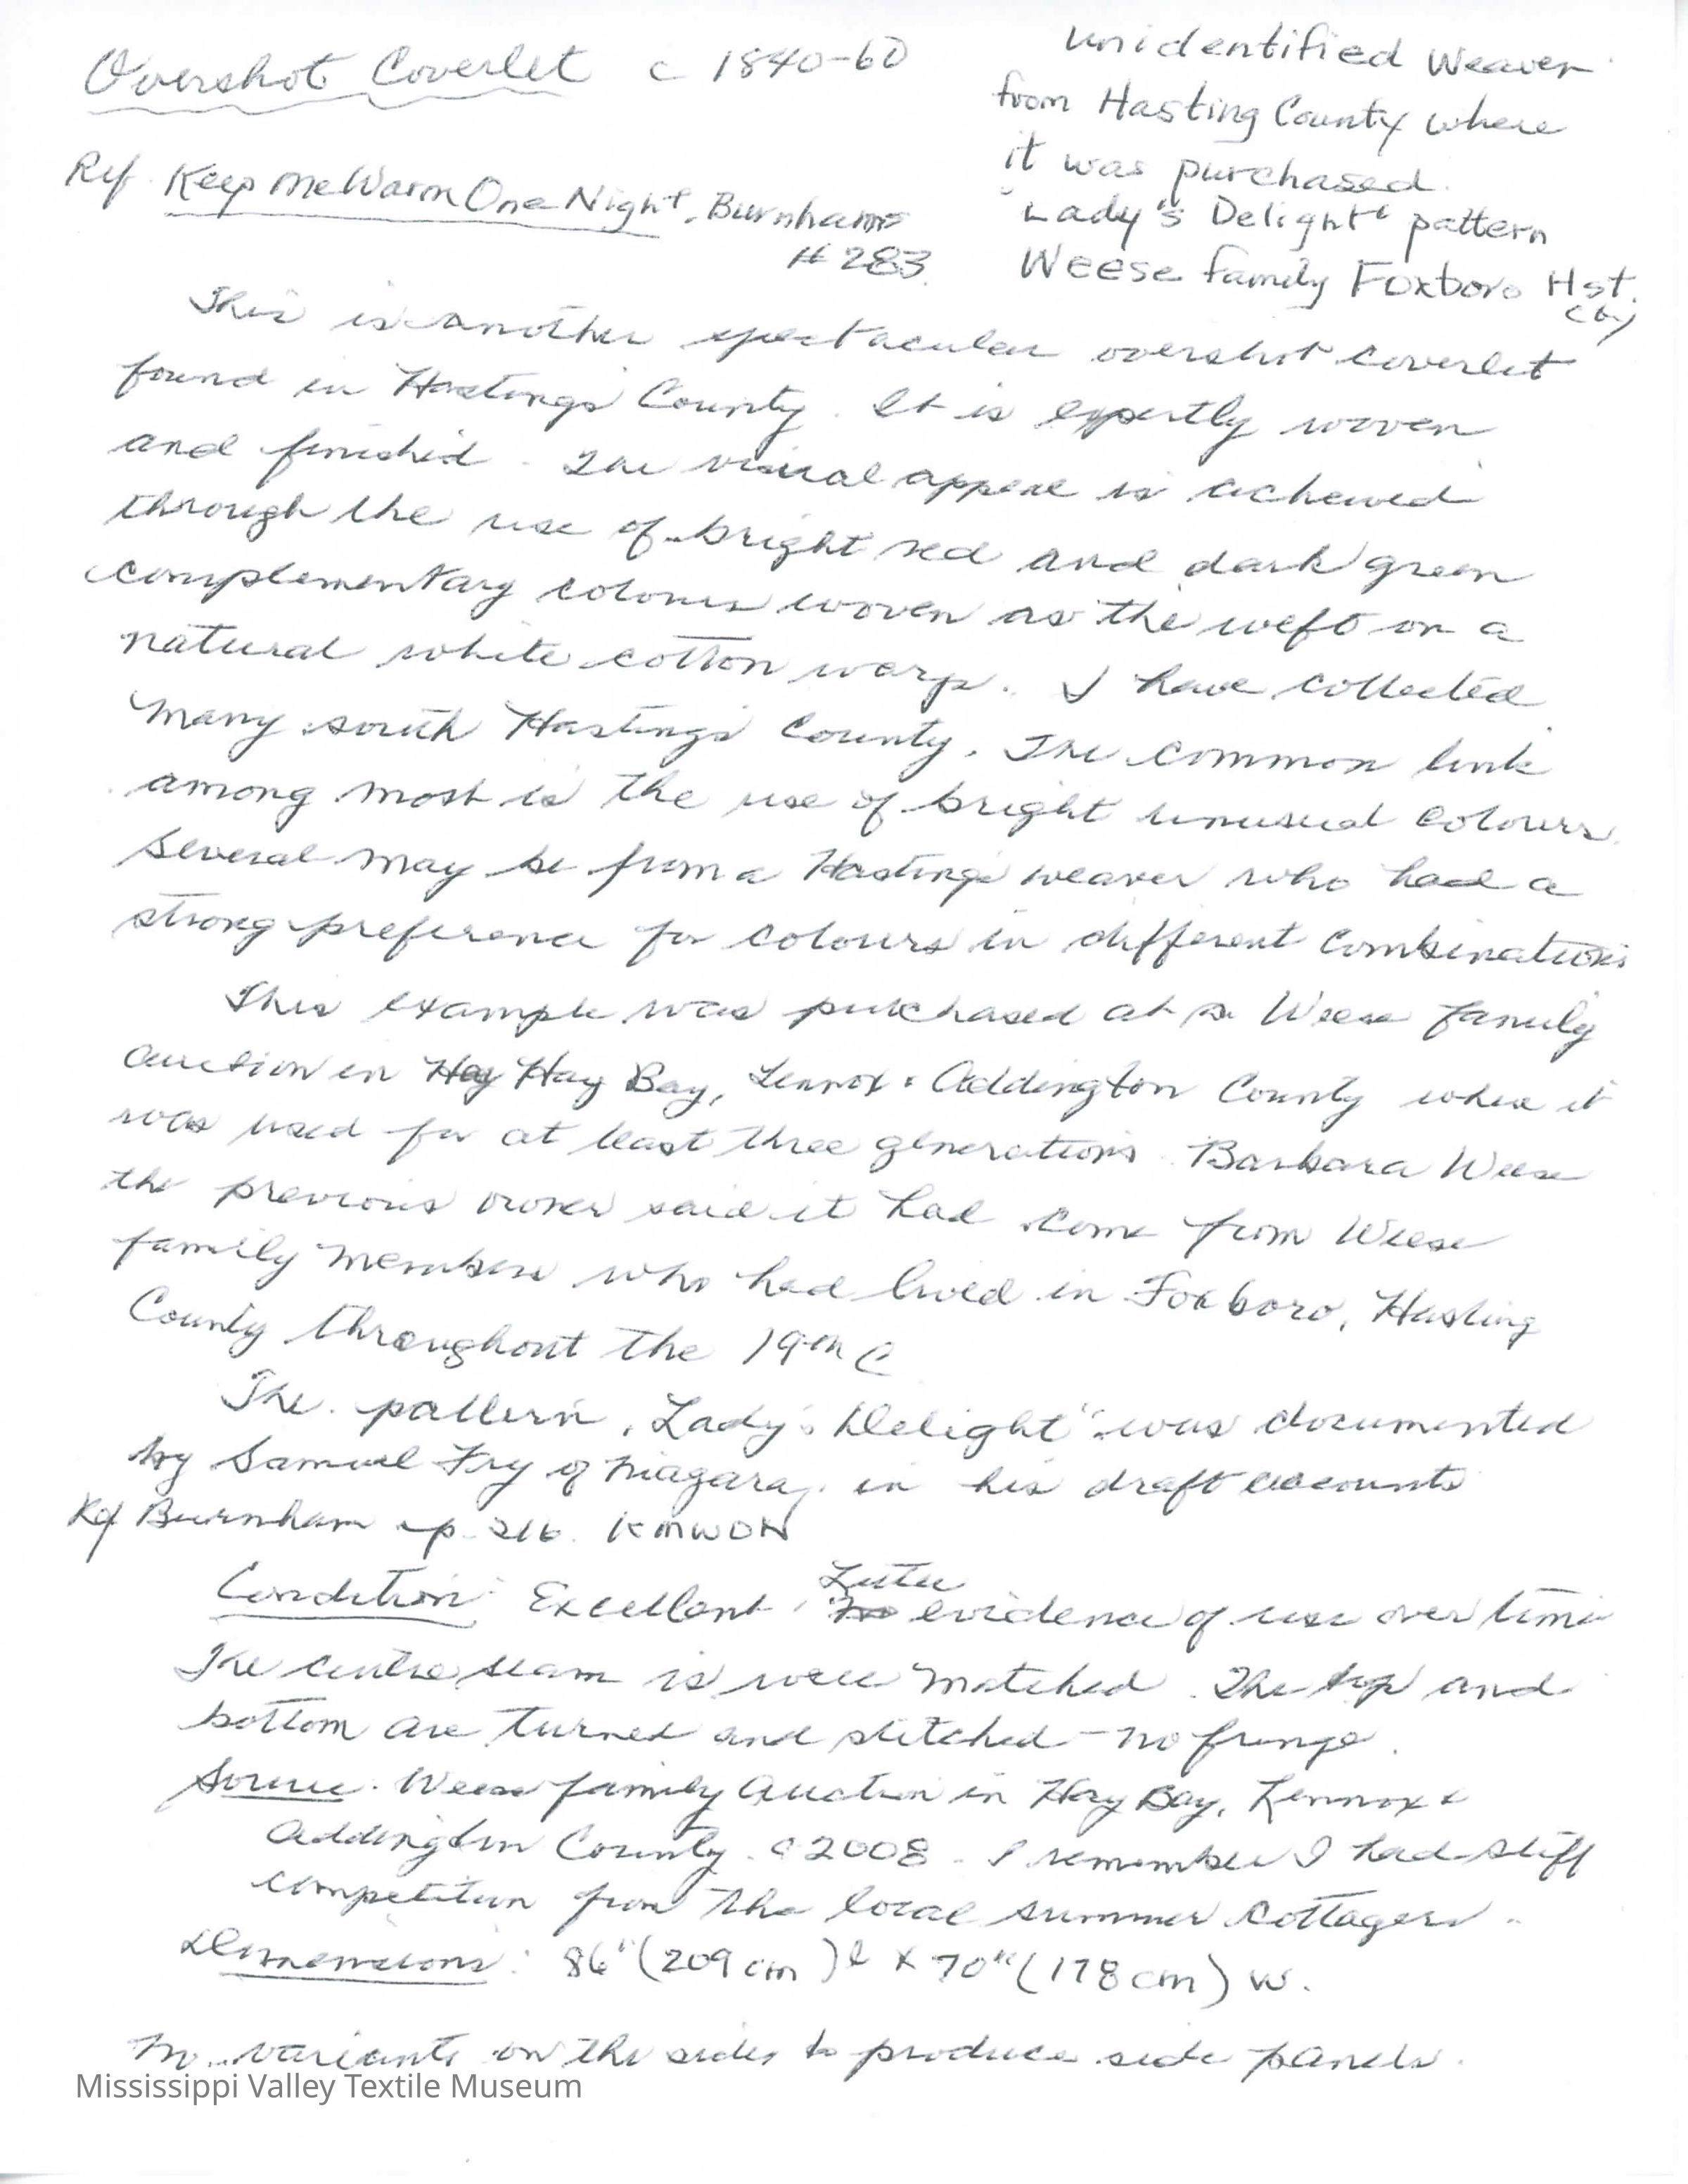 Overshot Coverlet c 1840-60
Unidentified Weaver
from Hasting County where
it was purchased.
"Lady's Delight" pattern
Weese family Foxboro Hst.
cty
Ref. Keep Me Warm One Night, Burnhams
# 283.
This is another spectacular overshot coverlet
found in Hastings County. It is expertly woven
and finished. The visual appeal is achieved
through the use of bright red and dark green
complementary colours woven as the weft on a
natural white cotton warp. I have collected
many south Hastings County. The common link
among most is the use of bright unusual colours.
Several may be from a Hastings weaver who had a
strong preference for colours in different combinations
This example was purchased at a Weese family
auction in Hay Hay Bay, Lennox & Addington County where it
was used for at least three generations. Barbara Weese
the previous owner said it had come from Weese
family members who had lived in Foxboro, Hasting
County throughout the 19th C
The pattern, "Lady's Delight" was documented
by Samuel Fry of Niagara, in his draft accounts
Ref Burnham p. 216. KMWON
Condition: Excellent, Little
No evidence of use over time
The centre seam is well matched. The top and
bottom are turned and stitched - no fringe.
Source. Weese family Auction in Hay Bay, Lennox &
Addington County. c 2008. I remember I had stiff
competition from the local summer cottagers.
Dimensions: 86" (209 cm) l x 70" (178 cm) w.
No variants on the sides to produce side panels.
Mississippi Valley Textile Museum